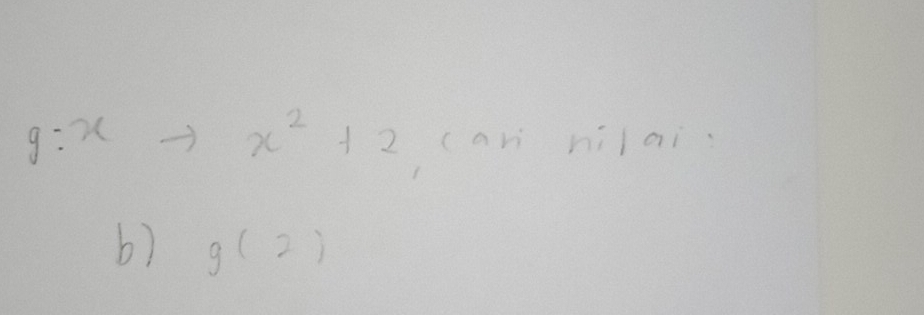 g : x → x² + 2, cari nilai :
b) g( 2 )